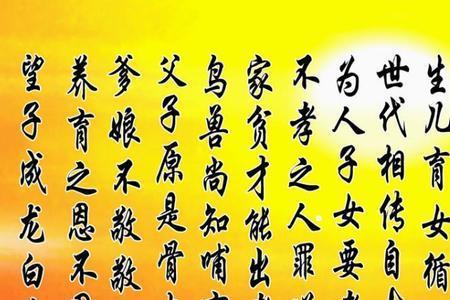 生儿育女循
世代相传自
为人子女要
不孝之人罪
家贫才能出
鸟兽尚知哺
父子原是骨
爹娘不敬敬
养育之恩不
望子成龙白